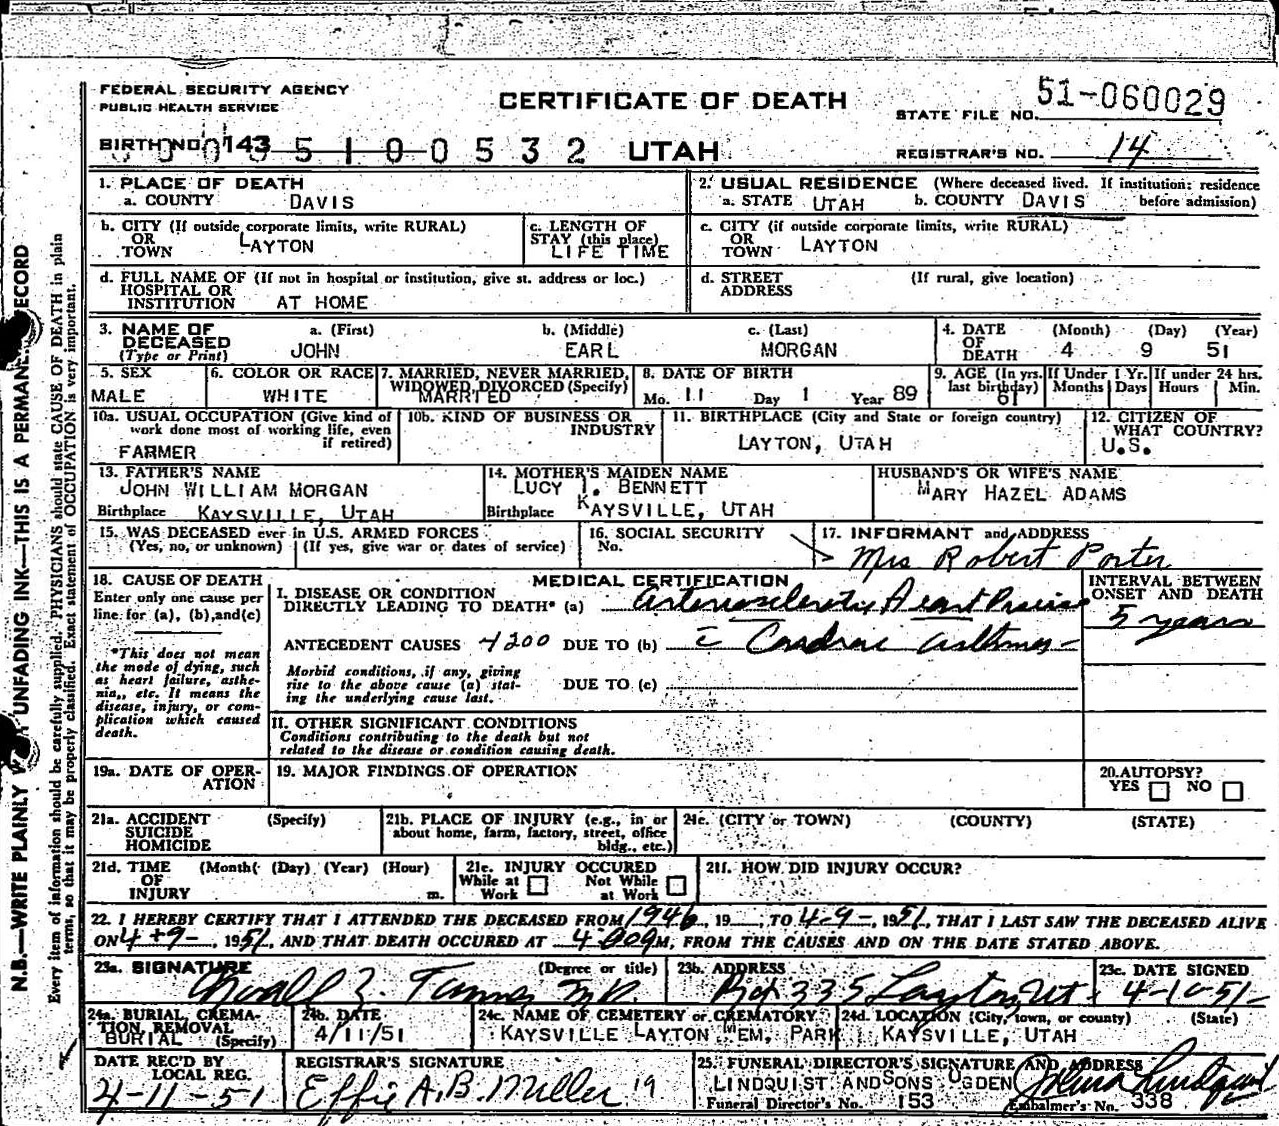 FEDERAL SECURITY AGENCY
PUBLIC HEALTH SERVICE
CERTIFICATE OF DEATH
STATE FILE NO. 51-060029
BIRTH NO. 143 5100532 UTAH
REGISTRAR'S NO. 14
1. PLACE OF DEATH
a. COUNTY DAVIS
2. USUAL RESIDENCE (Where deceased lived. If institution: residence before admission)
a. STATE UTAH b. COUNTY DAVIS
b. CITY (If outside corporate limits, write RURAL)
OR
TOWN LAYTON
c. LENGTH OF
STAY (this place)
LIFE TIME
c. CITY (if outside corporate limits, write RURAL)
OR
TOWN LAYTON
d. FULL NAME OF (If not in hospital or institution, give st. address or loc.)
HOSPITAL OR
INSTITUTION AT HOME
d. STREET (If rural, give location)
ADDRESS
3. NAME OF DECEASED
(Type or Print)
a. (First) b. (Middle) c. (Last)
JOHN EARL MORGAN
4. DATE OF DEATH (Month) (Day) (Year)
4 9 51
5. SEX
MALE
6. COLOR OR RACE
WHITE
7. MARRIED, NEVER MARRIED,
WIDOWED, DIVORCED (Specify)
MARRIED
8. DATE OF BIRTH
Mo. 11 Day 1 Year 89
9. AGE (In yrs. last birthday)
61
If Under 1 Yr. Months Days
If under 24 hrs. Hours Min.
10a. USUAL OCCUPATION (Give kind of
work done most of working life, even
if retired)
FARMER
10b. KIND OF BUSINESS OR
INDUSTRY
11. BIRTHPLACE (City and State or foreign country)
LAYTON, UTAH
12. CITIZEN OF
WHAT COUNTRY?
U.S.
13. FATHER'S NAME
JOHN WILLIAM MORGAN
Birthplace KAYSVILLE, UTAH
14. MOTHER'S MAIDEN NAME
LUCY I. BENNETT
Birthplace KAYSVILLE, UTAH
HUSBAND'S OR WIFE'S NAME
MARY HAZEL ADAMS
15. WAS DECEASED ever in U.S. ARMED FORCES
(Yes, no, or unknown) (If yes, give war or dates of service)
16. SOCIAL SECURITY
No.
17. INFORMANT and ADDRESS
Mrs Robert Porter
18. CAUSE OF DEATH
Enter only one cause per
line for (a), (b), and (c)
*This does not mean
the mode of dying, such
as heart failure, asthe-
nia, etc. It means the
disease, injury, or com-
plication which caused
death.
MEDICAL CERTIFICATION
I. DISEASE OR CONDITION
DIRECTLY LEADING TO DEATH* (a) Arteriosclerotic Heart Disease
ANTECEDENT CAUSES 4200 DUE TO (b) c̄ Cardiac asthma
Morbid conditions, if any, giving
rise to the above cause (a) stat-
ing the underlying cause last.
DUE TO (c)
INTERVAL BETWEEN
ONSET AND DEATH
5 years
II. OTHER SIGNIFICANT CONDITIONS
Conditions contributing to the death but not
related to the disease or condition causing death.
19a. DATE OF OPER-
ATION
19. MAJOR FINDINGS OF OPERATION
20. AUTOPSY?
YES NO
21a. ACCIDENT (Specify)
SUICIDE
HOMICIDE
21b. PLACE OF INJURY (e.g., in or
about home, farm, factory, street, office
bldg., etc.)
21c. (CITY or TOWN) (COUNTY) (STATE)
21d. TIME (Month) (Day) (Year) (Hour)
OF
INJURY m.
21e. INJURY OCCURED
While at Work Not While at Work
21f. HOW DID INJURY OCCUR?
22. I HEREBY CERTIFY THAT I ATTENDED THE DECEASED FROM 1946, 19__, TO 4-9-, 1951, THAT I LAST SAW THE DECEASED ALIVE
ON 4-9-, 1951, AND THAT DEATH OCCURED AT 4:00 M, FROM THE CAUSES AND ON THE DATE STATED ABOVE.
23a. SIGNATURE (Degree or title)
Z. Tanner M.D.
23b. ADDRESS
Box 335 Layton, Ut
23c. DATE SIGNED
4-10-51
24a. BURIAL, CREMA-
TION, REMOVAL
BURIAL (Specify)
24b. DATE
4/11/51
24c. NAME OF CEMETERY or CREMATORY
KAYSVILLE LAYTON MEM. PARK
24d. LOCATION (City, town, or county) (State)
KAYSVILLE, UTAH
DATE REC'D BY
LOCAL REG.
4-11-51
REGISTRAR'S SIGNATURE
Effie A.B. Miller 19
25. FUNERAL DIRECTOR'S SIGNATURE AND ADDRESS
LINDQUIST AND SONS OGDEN Lindquist
Funeral Director's No. 153 Embalmer's No. 338
N.B.—WRITE PLAINLY UNFADING INK—THIS IS A PERMANENT RECORD
Every item of information should be carefully supplied. PHYSICIANS should state CAUSE OF DEATH in plain
terms, so that it may be properly classified. Exact statement of OCCUPATION is very important.